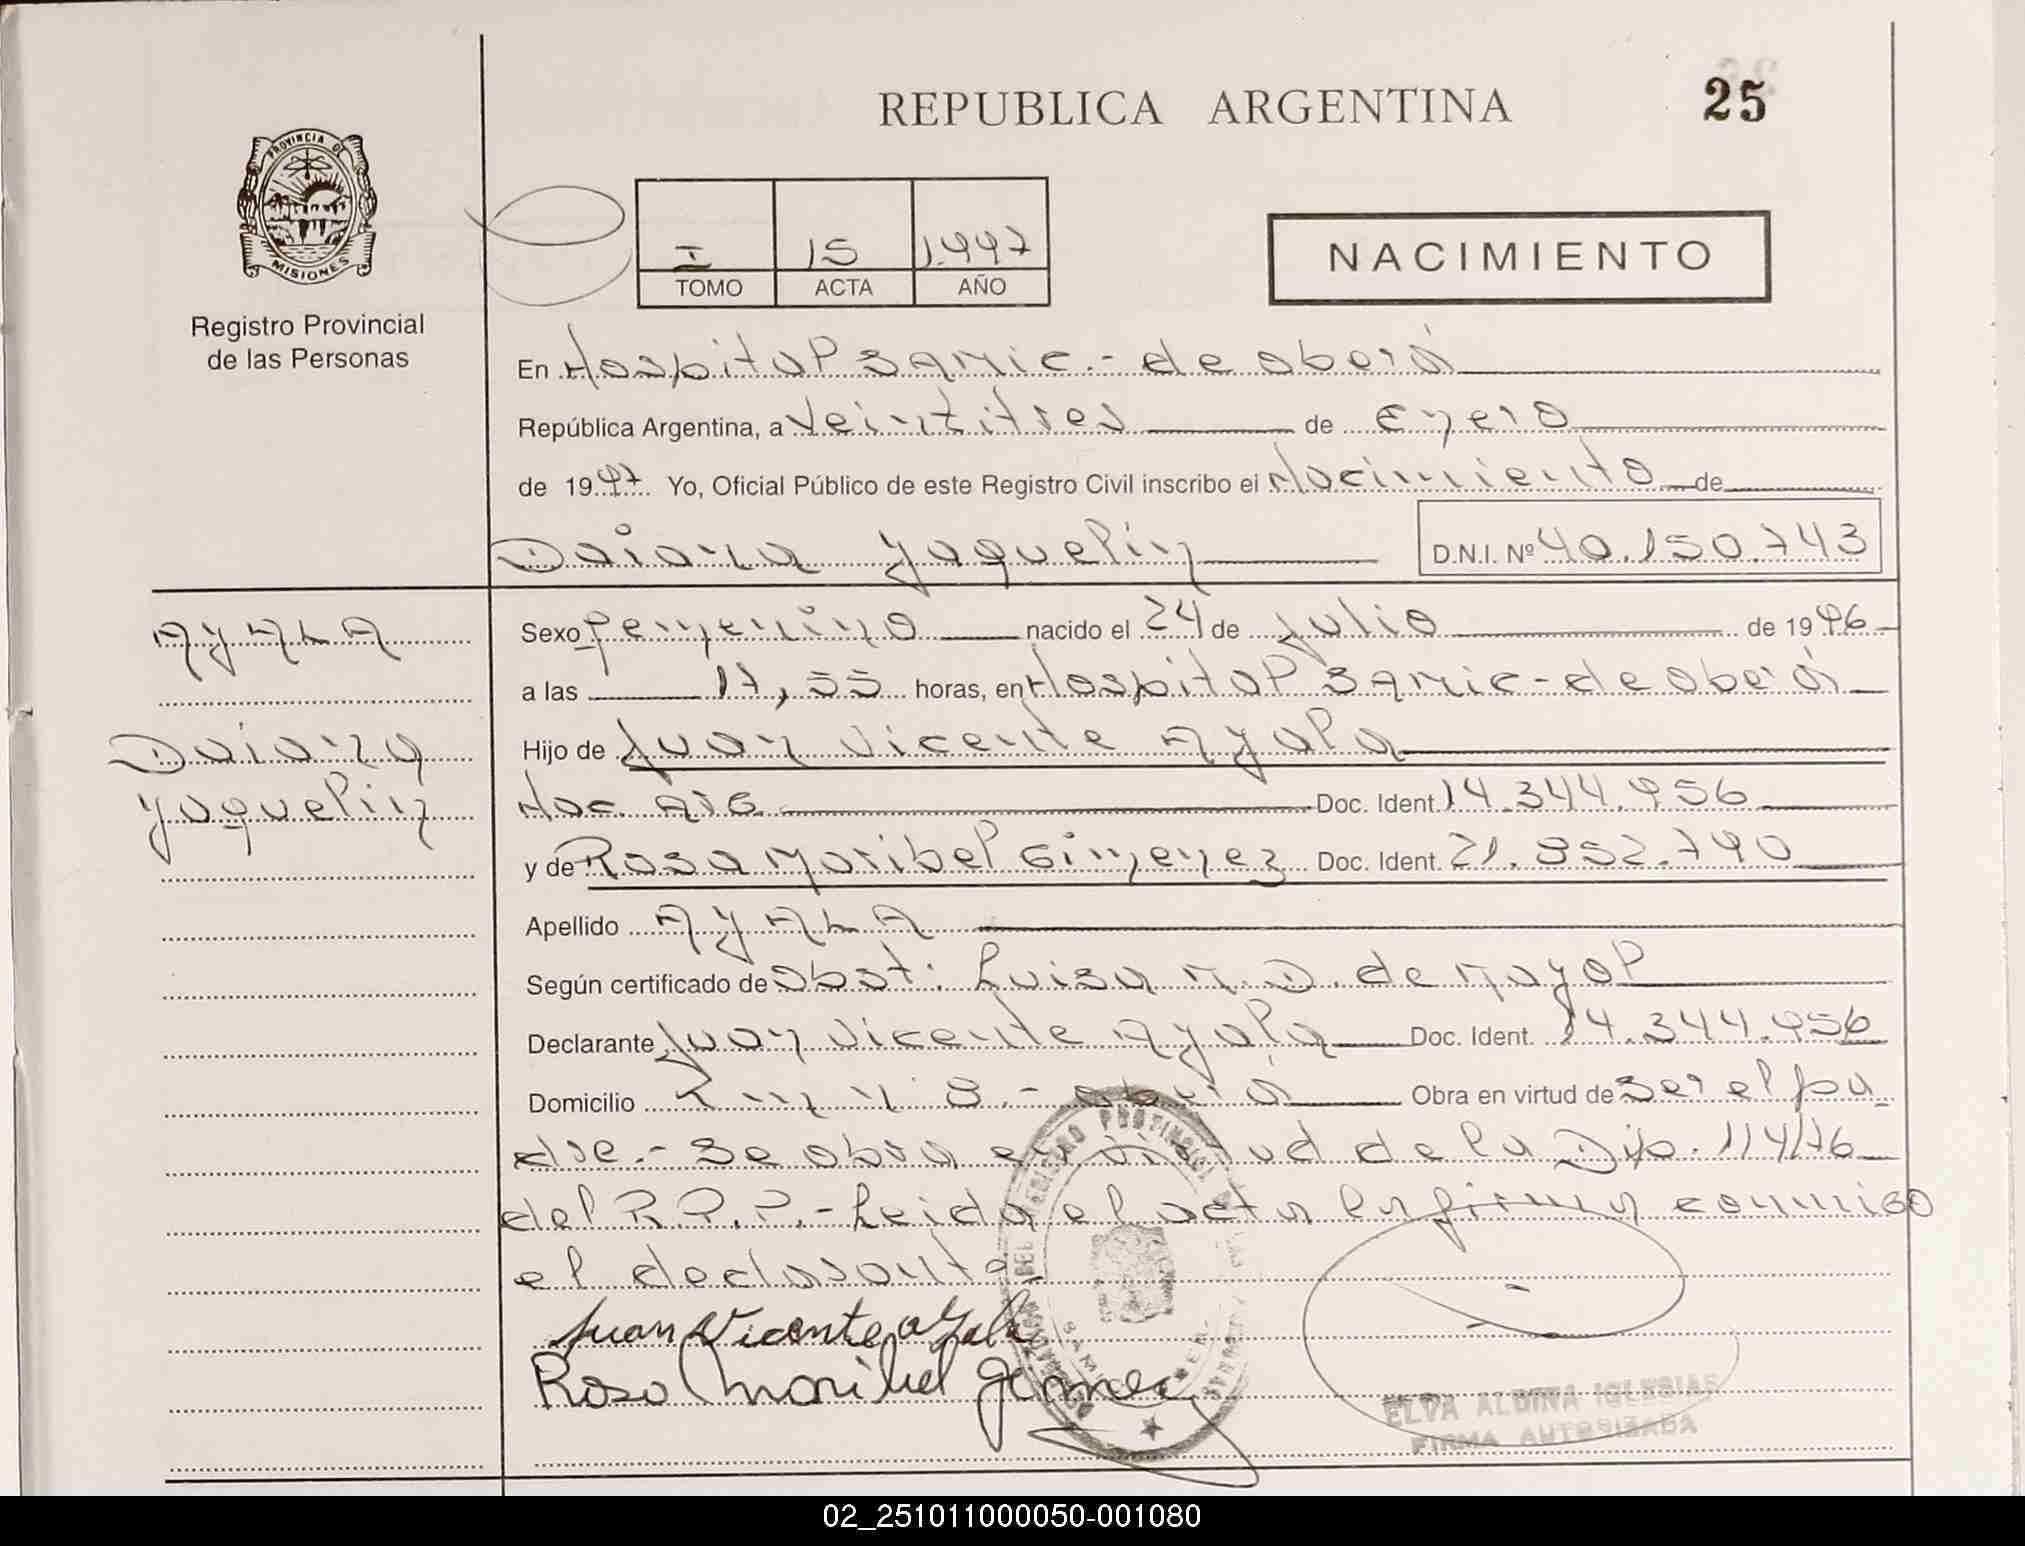 REPUBLICA ARGENTINA
25
PROVINCIA DE
MISIONES
Registro Provincial
de las Personas
I 15 1.997
TOMO ACTA AÑO
NACIMIENTO
En Hospital SAMIC.- de oberá
República Argentina, a Veintitres de Enero
de 1997 Yo, Oficial Público de este Registro Civil inscribo el Nacimiento de
Daiana Yaquelin D.N.I. Nº 40.150.743
AYALA
Daiana
Yaquelin
Sexo Femenino nacido el 24 de Julio de 1996
a las 17,55 horas, en Hospital SAMIC - de oberá
Hijo de Juan Vicente Ayala
Nac. ARG. Doc. Ident. 14.344.956
y de Rosa Maribel Gimenez Doc. Ident. 21.852.790
Apellido AYALA
Según certificado de Obst. Luisa M. D. de Mayol
Declarante Juan Vicente Ayala Doc. Ident. 14.344.956
Domicilio 8.- oberá Obra en virtud de ser el pa-
dre.- Se obra en virtud de la Disp. 114/76
del R.P.P.- Leida el acta la firma conmigo
el declarante
Juan Vicente Ayala
Rosa Maribel Gimenez
ELVA ALBINA IGLESIAS
FIRMA AUTORIZADA
02_251011000050-001080